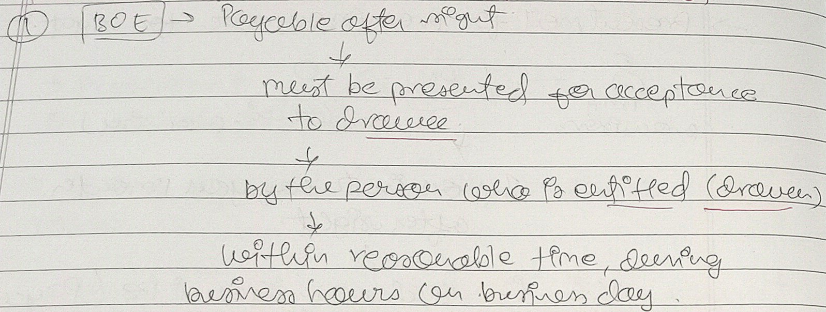 ① BOE → Payable after sight
↓
must be presented for acceptance
to drawee
↓
by the person who is entitled (drawer)
↓
within reasonable time, during
business hours on business day.